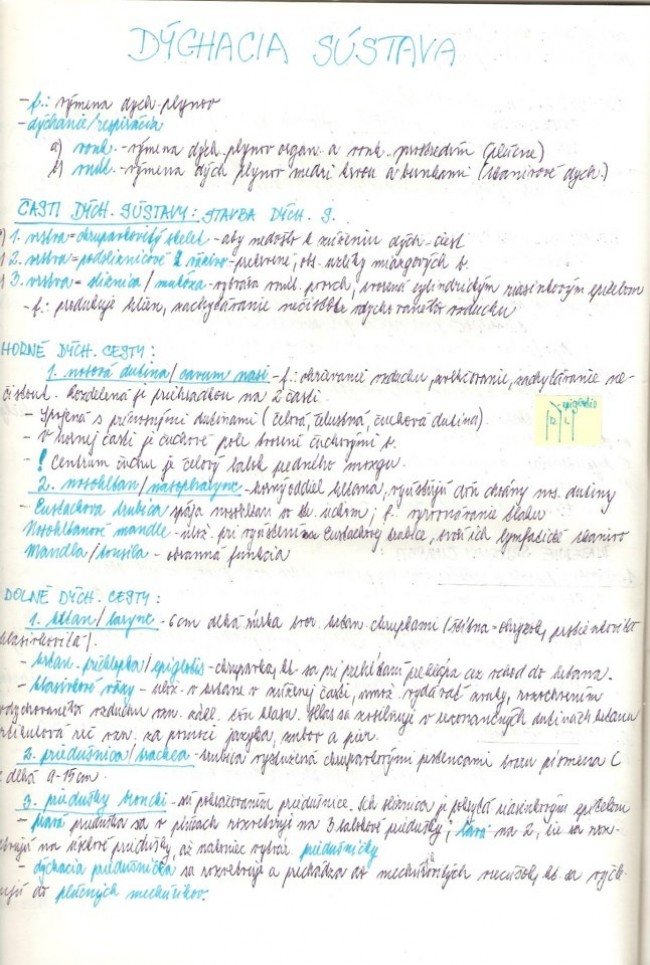 DÝCHACIA SÚSTAVA
- f.: výmena dých. plynov
- dýchanie/respirácia
a) vonk. - výmena dých. plynov organ. a vonk. prostredím (pľúcne)
b) vnút. - výmena dých. plynov medzi krvou a bunkami (tkanivové dých.)
ČASTI DÝCH. SÚSTAVY: STAVBA DÝCH. S.
1. vrstva = chrupavkovitý skelet - aby nedošlo k zúženiu dých. ciest
2. vrstva = podslizničové väzivo - prekrvené, obs. uzlíky miazgových b.
3. vrstva = sliznica / mukóza - vytvára vnút. povrch, tvorená cylindrickým riasinkovým epitelom
- f.: produkuje hlien, zachytávanie nečistôt vdychovaného vzduchu
HORNÉ DÝCH. CESTY:
1. nosová dutina / cavum nasi - f.: ohrievanie vzduchu, zvlhčovanie, zachytávanie ne-
čistôt. Rozdelená je priehradkou na 2 časti.
- Spojená s prínosnými dutinami (čelová, čeľustná, čuchová dutina).
- V hornej časti je čuchové pole tvorené čuchovými b.
- ! Centrum čuchu je čelový lalok predného mozgu.
epiglotis
2. nosohltan / nasopharynx - horný oddiel hltana, vyúsťujú doň chrány nos. dutiny
- Eustachova trubica spája nosohltan so str. uchom; f. vyrovnávanie tlaku
Nosohltanové mandle - ulož. pri vyústení Eustachovej trubice, tvorí ich lymfatické tkanivo
Mandľa / tonsila - obranná funkcia
DOLNÉ DÝCH. CESTY:
1. hrtan / larynx - 6cm dlhá rúrka tvor. hrtan. chrupkami (štítna = ohryzok, prstienkovitá
hlasivkovitá).
- hrtan. príchlopka / epiglotis - chrupavka, kt. sa pri prehĺtaní preklápa cez vchod do hrtana.
- hlasivkové väzy - ulož. v hrtane v zúženej časti, umož. vydávať zvuky, rozochvením
vydychovaného vzduchu vzn. zákl. tón hlasu. Hlas sa zosilňuje v rezonančných dutinách hrtanu
artikulovaná reč vzn. za pomoci jazyka, zubov a pier.
2. priedušnica / trachea - trubica vystužená chrupavkovými prstencami tvaru písmena C
dlhá 9-15cm.
3. priedušky bronchi - sú pokračovaním priedušnice. Ich sliznica je pokrytá riasinkovým epitelom
- pravá prieduška sa v pľúcach rozvetvuje na 3 lalokové priedušky, ľavá na 2, tie sa roz-
vetvujú na priedušky, až nakoniec vytvár. priedušničky
- dýchacia priedušnička sa rozvetvuje a prechádza do mechúrikovitých vaciek, kt. sa vyčle-
ňujú do pľúcnych mechúrikov.